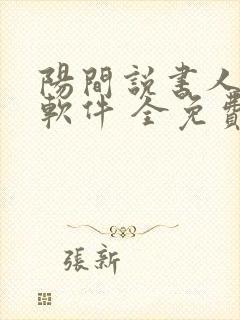 陽間說書人
軟件 全免費
張新